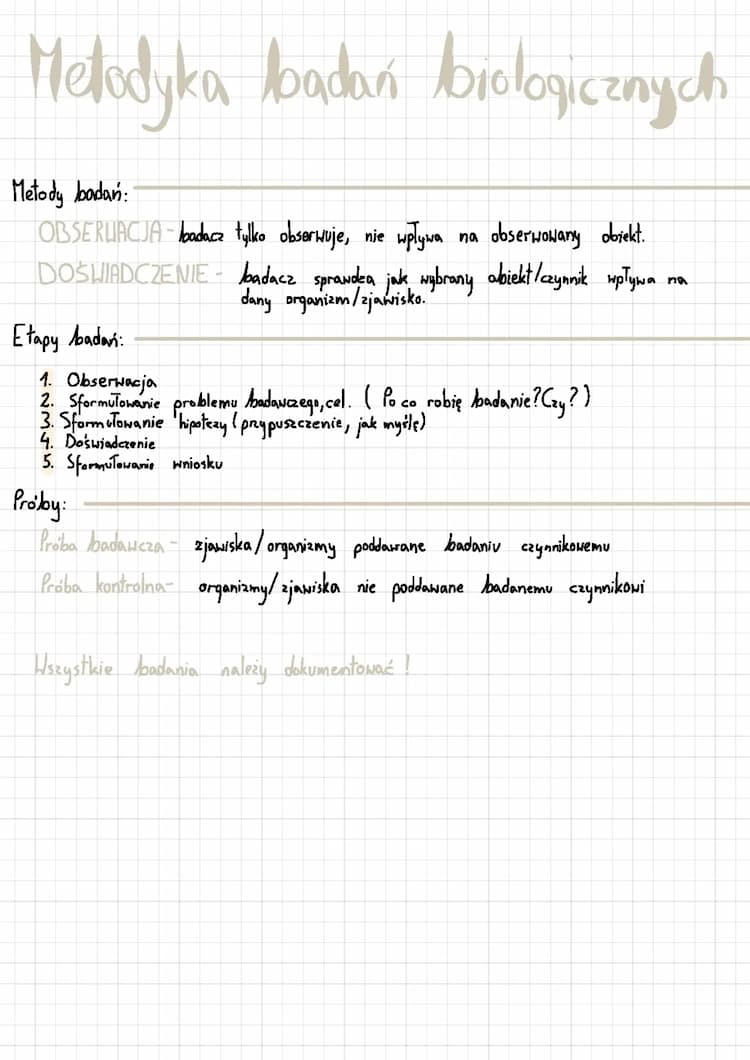 Metodyka badań biologicznych
Metody badań:
OBSERWACJA - badacz tylko obserwuje, nie wpływa na obserwowany obiekt.
DOŚWIADCZENIE - badacz sprawdza jak wybrany obiekt/czynnik wpływa na
dany organizm/zjawisko.
Etapy badań:
1. Obserwacja
2. Sformułowanie problemu badawczego, cel. (Po co robię badanie? Czy?)
3. Sformułowanie hipotezy (przypuszczenie, jak myślę)
4. Doświadczenie
5. Sformułowanie wniosku
Próby:
Próba badawcza - zjawiska/organizmy poddawane badaniu czynnikowemu
Próba kontrolna - organizmy/zjawiska nie poddawane badanemu czynnikowi
Wszystkie badania należy dokumentować!